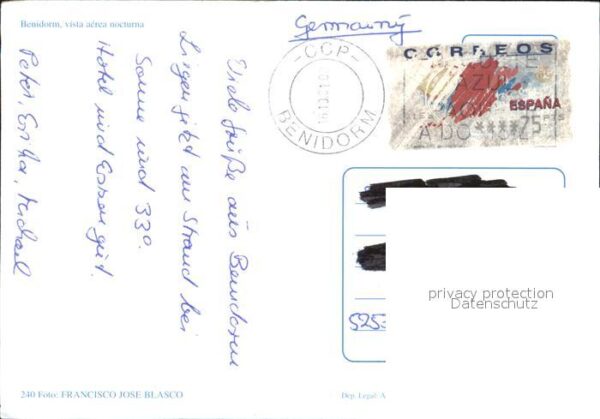 Benidorm, vista aérea nocturna
Germany
CCP
BENIDORM
CORREOS
ESPAÑA
****25 PTS
Viele Grüße aus Benidorm
Liegen jetzt am Strand bei
Sonne und 33°.
Hotel und Essen gut.
Peter, Erika, Michael
privacy protection
Datenschutz
525
240 Foto: FRANCISCO JOSE BLASCO
Dep. Legal: A